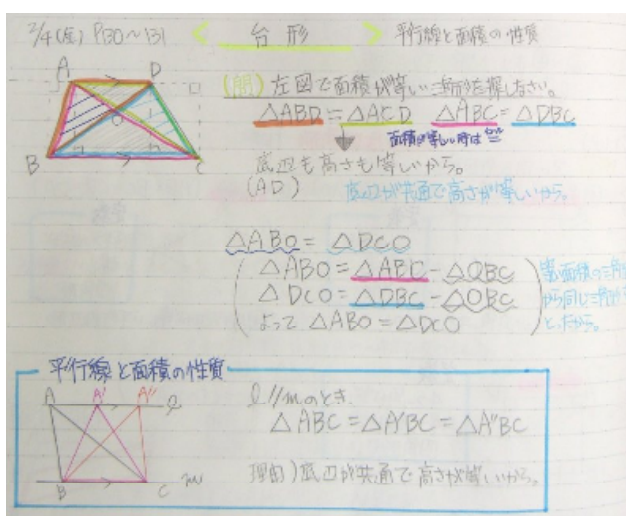 2/4(金) P130〜131 < 台形 > 平行線と面積の性質
A D
O
B C
(問) 左図で面積が等しい三角形を探しなさい。
△ABD = △ACD △ABC = △DBC
面積が等しい時は "="
底辺も高さも等しいから。
(AD) 底辺が共通で高さが等しいから。
△ABO = △DCO
△ABO = △ABC - △OBC
△DCO = △DBC - △OBC
よって △ABO = △DCO
面積の三角形
から同じ三角形
とったから。
平行線と面積の性質
A A' A'' ℓ
B C m
ℓ//mのとき
△ABC = △A'BC = △A''BC
理由)底辺が共通で高さが等しいから。